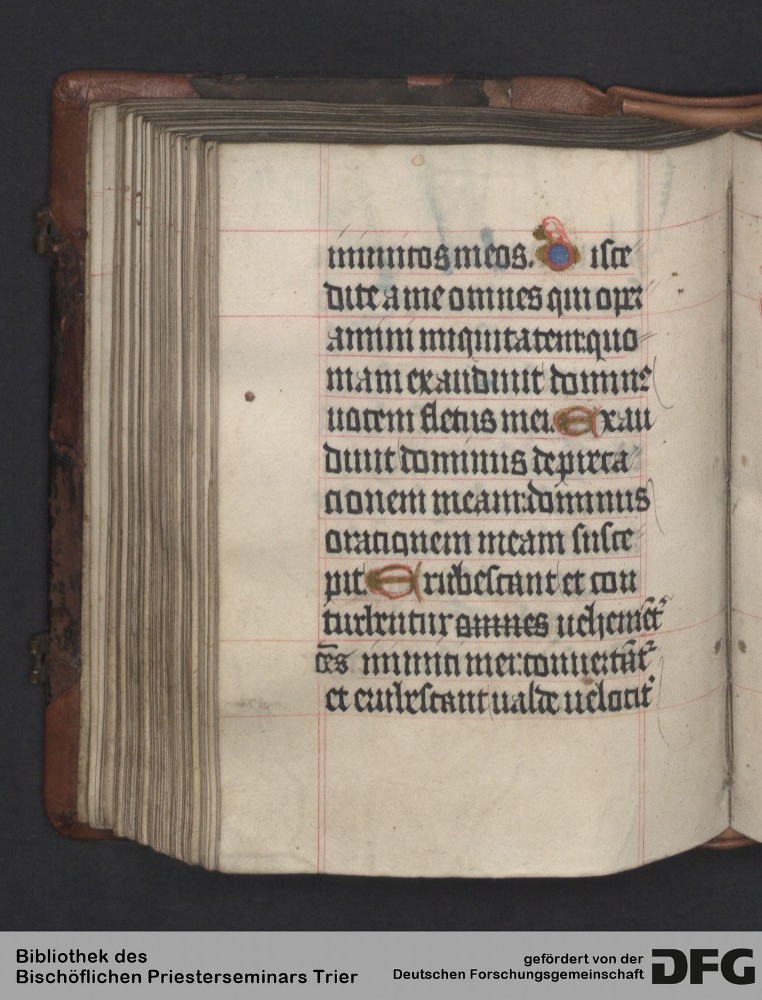 inimicos meos. Disce
dite a me omnes qui oper
amini iniquitatem: quo
niam exaudiuit dominus
uocem fletus mei. Exau
diuit dominus depreca
cionem meam: dominus
orationem meam susce
pit. Erubescant et con
turbentur omnes uehemēt
oēs inimici mei: conuertāt᷑
et erubescant ualde uelocit᷑
Bibliothek des
Bischöflichen Priesterseminars Trier
gefördert von der
Deutschen Forschungsgemeinschaft
DFG